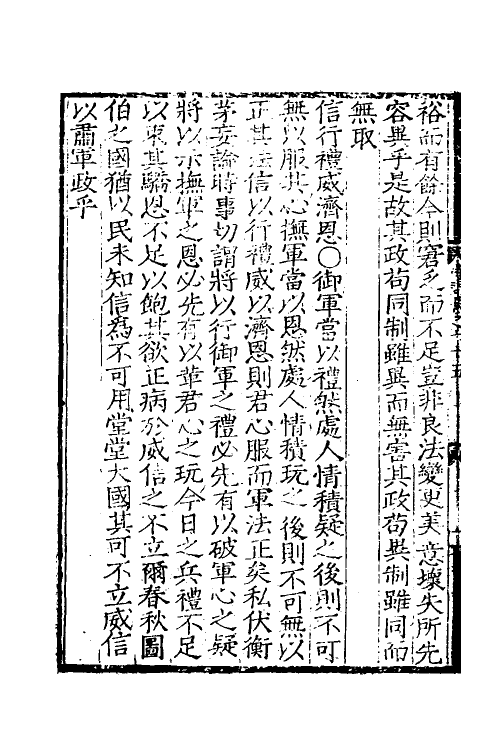 裕而有餘今則窘乏而不足豈非良法變更美意壞失所先
容異乎是故其政苟同制雖異而無害其政苟異制雖同而
無取
信行禮威濟恩○御軍當以禮然處人情積疑之後則不可
無以服其心撫軍當以恩然處人情積玩之後則不可無以
正其法信以行禮威以濟恩則君心服而軍法正矣私伏衡
茅妄論時事切謂將以行御軍之禮必先有以破軍心之疑
將以示撫軍之恩必先有以革君心之玩今日之兵禮不足
以束其驕恩不足以飽其欲正病於威信之不立爾春秋圖
伯之國猶以民未知信為不可用堂堂大國其可不立威信
以肅軍政乎